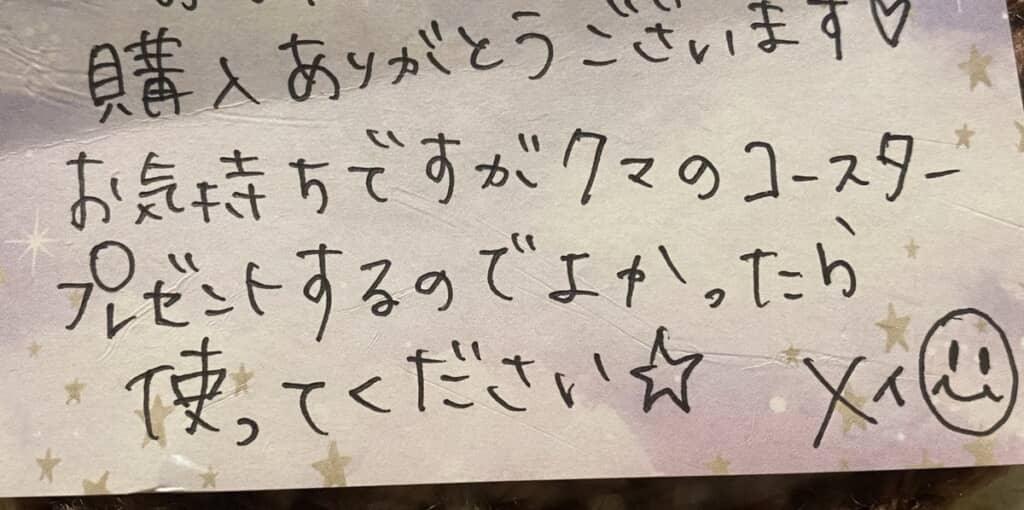 購入ありがとうございます♡
お気持ちですがクマのコースター
プレゼントするのでよかったら
使ってください☆ メイ